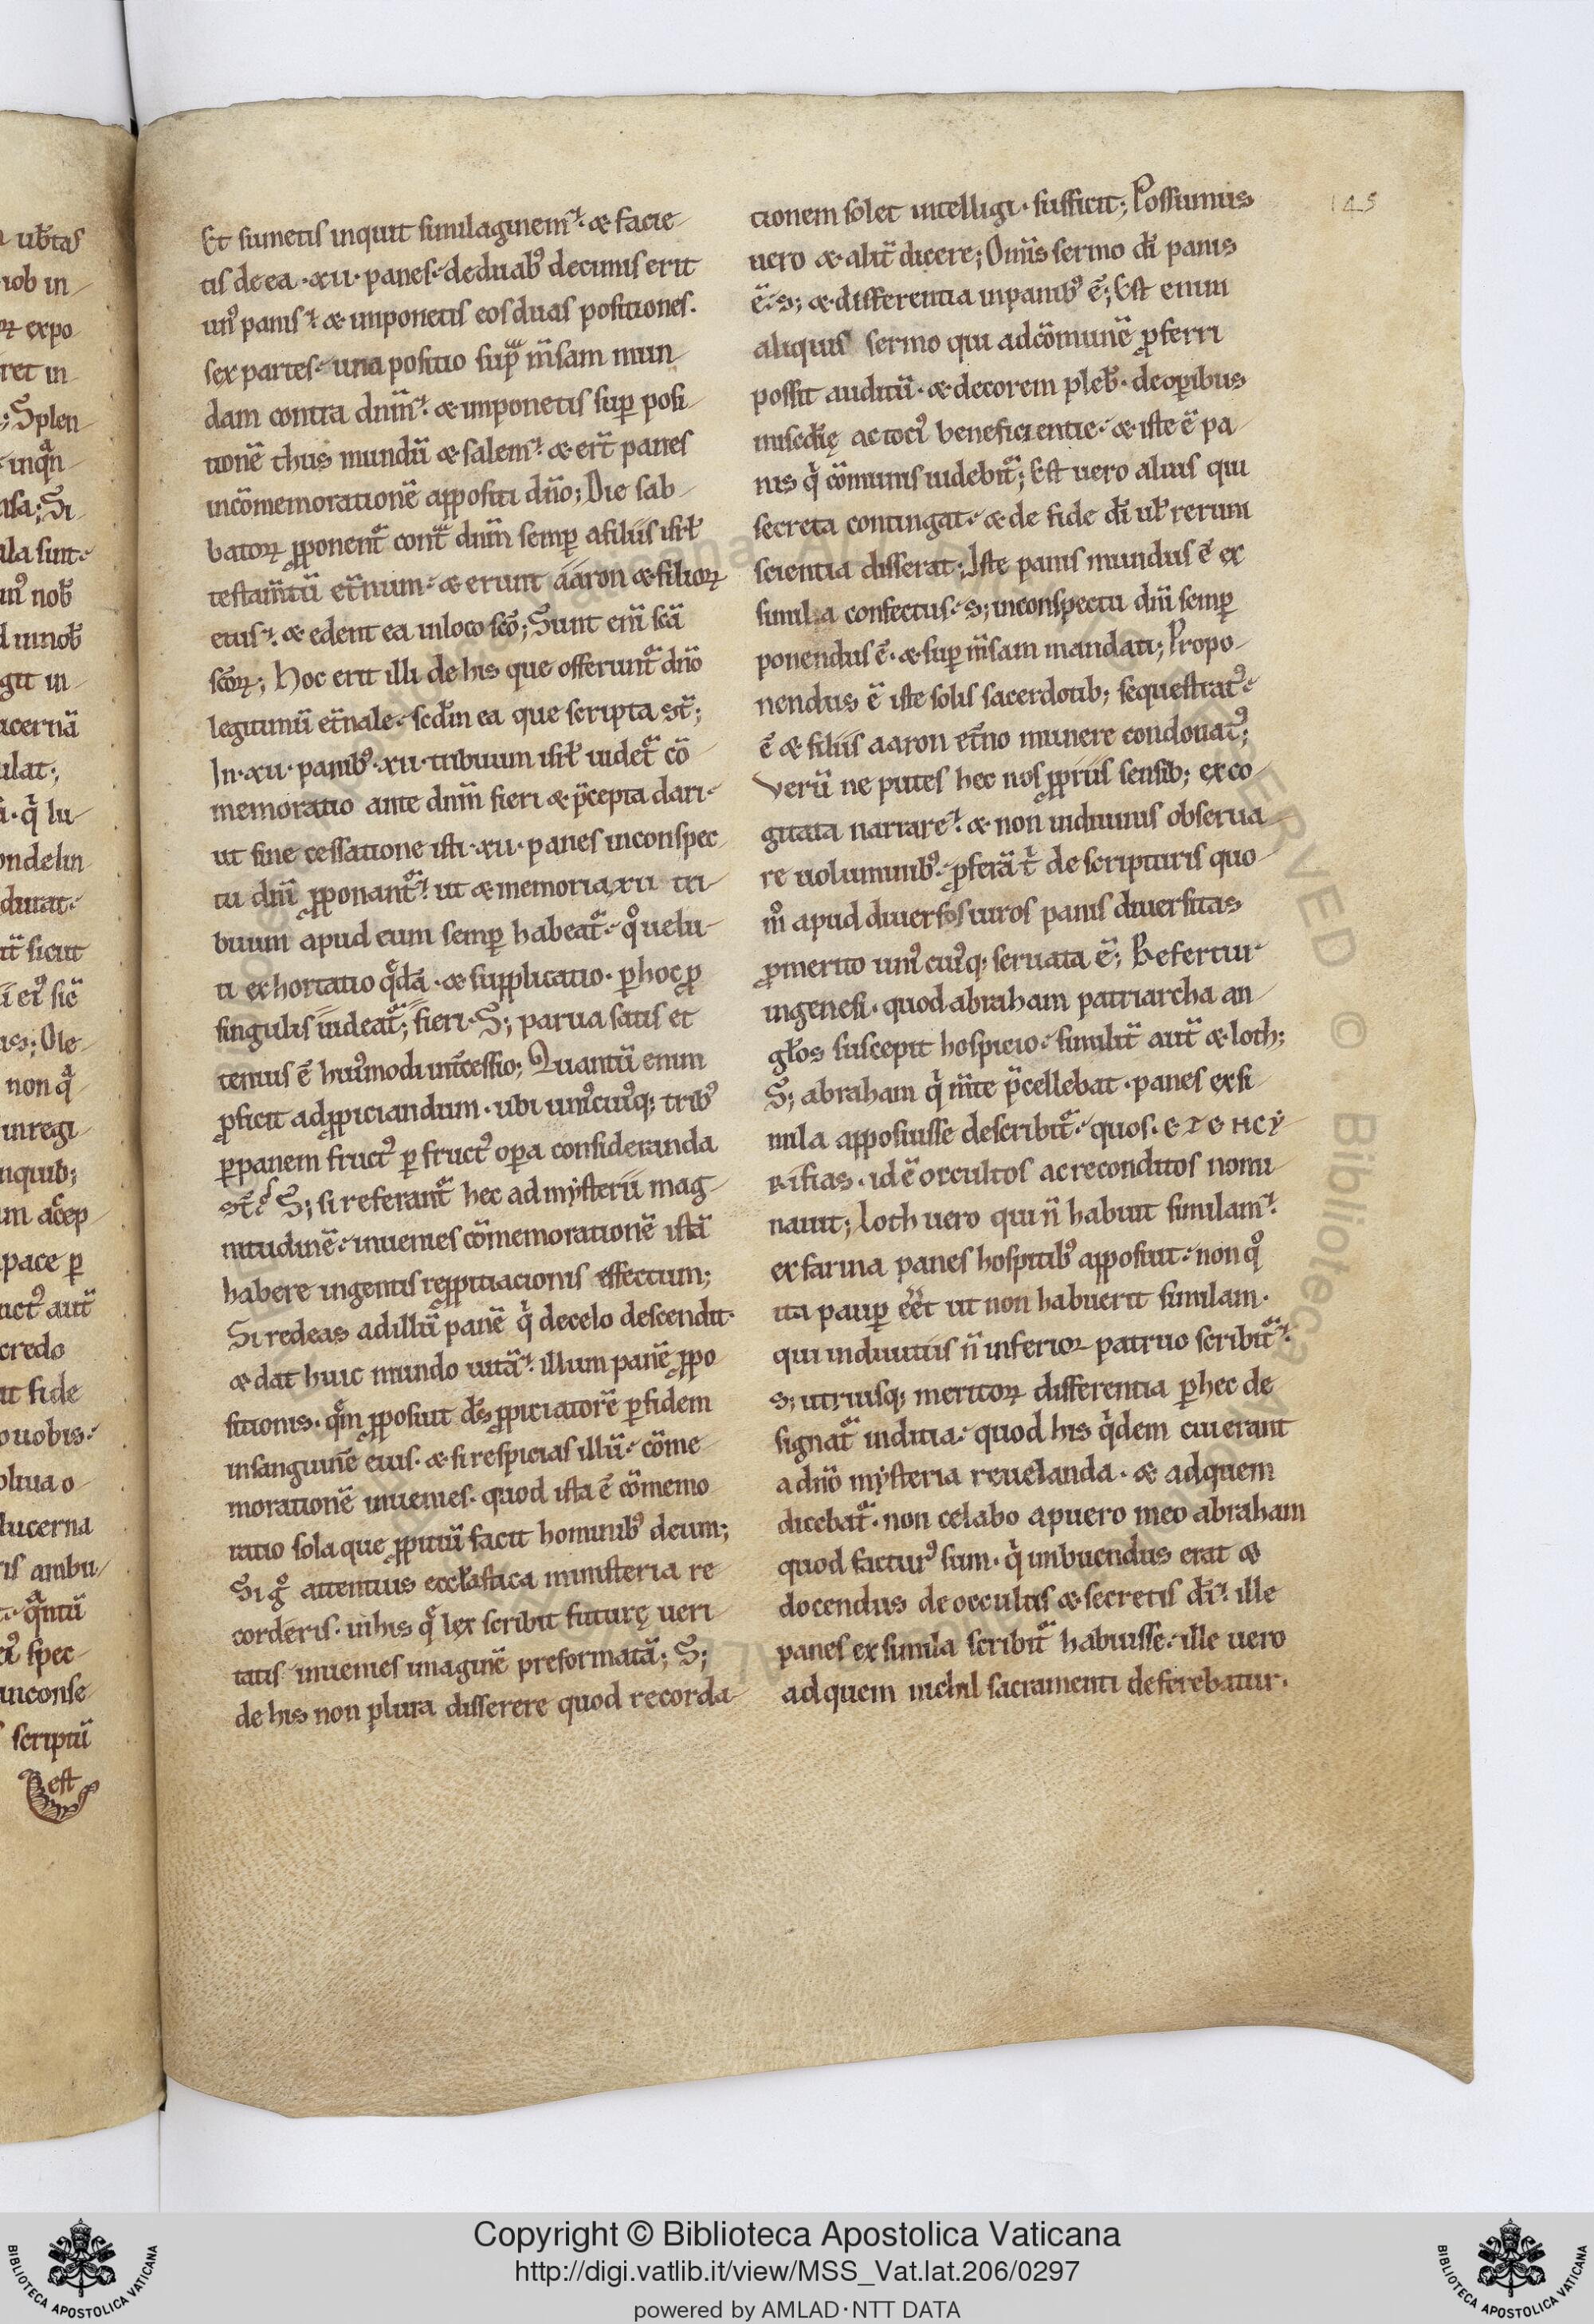 Et sumetis inquit similaginem· & facie-
tis de ea ·xii· panes· de duab᷒ decimis erit
un᷒ panis· & imponetis eos duas positiones·
sex partes· una positio sup̄ m̄sam mun-
dam contra dnm̄· & imponetis sup̱ posi-
tionē thus mundū & salem· & er̄t panes
in cōmemorationē appositi dn̄o; Die sab-
batoꝝ ꝓponent᷑ cont̄ dnm̄ semp̱ a filiis isrl̄
testam̄tū et̄num· & erunt aaron & filioꝝ
eius· & edent ea in loco sc̄o; Sunt eni᷑ sc̄ā
sc̄oꝝ; Hoc erit illi de his que offerunt᷑ dn̄o
legitimū et̄nale· scdm̄ ea que scripta st̄;
In ·xii· panib᷒ ·xii· tribuum isrl̄ uidet᷑ cō-
memoratio ante dnm̄ fieri & p̄cepta dari·
ut sine cessatione isti ·xii· panes in conspec-
tu dni᷑ ꝓponant᷑· ut & memoria xii tri-
buum apud eum semp̱ habeat᷑· qͦ uelu-
ti exhortatio qͣdā· & supplicatio· ꝑ hoc ꝓ
singulis uideat᷑; fieri· S; parua satis et
tenuis ē hui᷒modi int̄cessio; Quantū enim
ꝓficit ad ꝓpiciandum· ubi uni᷒cui᷒qꝫ trib᷒
ꝑ panem fruct᷒ ꝑ fruct᷒ oꝑa consideranda
st̄; S; si referant᷑ hec ad mẏsterii᷑ mag-
nitudinē· inuenies cōmemorationē istā
habere ingentis repꝓpitiacionis effectum;
Si redeas ad illū panē qͥ de celo descendit·
& dat huic mundo uitā· illum panē ꝓpo
sitionis· qͤm ꝓposuit ds̄ ꝓpiciatorē ꝑ fidem
in sanguinē eius· & si respicias illā· cōme
morationē inuenies· quod ista ē cōmemo-
ratio sola que ꝓpitiū facit hominib᷒ deum;
Si gͦ attentius eccl̄astica ministeria re
corderis· in his qͤ lex scribit futurę ueri
tatis inuenies imaginē preformatā; S;
de his non plura disserere quod recorda-
tionem solet intelligi· sufficit; Possumus
uero & alit̄ dicere; Omīs sermo di᷑ panis
ē· s; & differentia in panib᷒ ē; Est enim
aliquis sermo qui ad cōmunē ꝓferri
possit auditū· & decorem pleb̄· de oꝑibus
misc̄dię ac toci᷒ beneficientie· & iste ē pa-
nis qͥ cōmunis uidebit᷑; Est uero alius qui
secreta contingat· & de fide di᷑ ul̄ rerum
scientia disserat; Iste panis mundus ē ex
simila confectus· s; in conspectu dni᷑ semp̱
ponendus ē· & sup̱ m̄sam mandati; Propo-
nendus ē iste solis sacerdotibꝫ sequestrat᷒·
ē & filiis aaron et̄no munere condonat᷒;
Verū ne putes hec nos ꝓpriis sensibꝫ exco-
gitata narrare· & non in diuinis obserua-
re uoluminib᷒· ꝓferā tͥ de scripturis quo-
mͦ apud diuersos uiros panis diuersitas
ꝓ merito uni᷒cui᷒qꝫ seruata ē; Refertur
in genesi· quod abraham patriarcha an-
gl̄os suscepit hospicio· similit̄ aut̄ & loth;
S; abraham qͥ m̄ite p̄cellebat· panes ex si-
mila apposuisse describit᷑· quos· etencẏ
rifias· id ē occultos ac reconditos nomi-
nauit; Loth uero qui n̄ habuit similam·
ex farina panes hospitib᷒ apposuit· non qͦ
ita paup̱ eēt ut non habuerit similam·
qui in diuitiis n̄ inferior patruo scribit᷑·
s; utriusqꝫ meritoꝝ differentia ꝑ hec de
signat᷑ inditia· quod his qͥdem cui erant
a dn̄o mẏsteria reuelanda· & ad quem
dicebat᷑· non celabo a puero meo abraham
quod factur᷒ sum· qͥ imbuendus erat &
docendus de occultis & secretis di᷑· ille
panes ex simila scribit᷑ habuisse· ille uero
ad quem nichil sacramenti deferebatur·
145
Copyright © Biblioteca Apostolica Vaticana
http://digi.vatlib.it/view/MSS_Vat.lat.206/0297
powered by AMLAD·NTT DATA